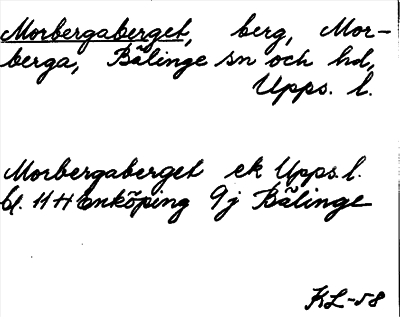 Morbergaberget, berg, Mor-
berga, Bälinge sn och hd,
Upps. l.
Morbergaberget ek Upps. l.
bl. 11 H Enköping 9j Bälinge
KL-58